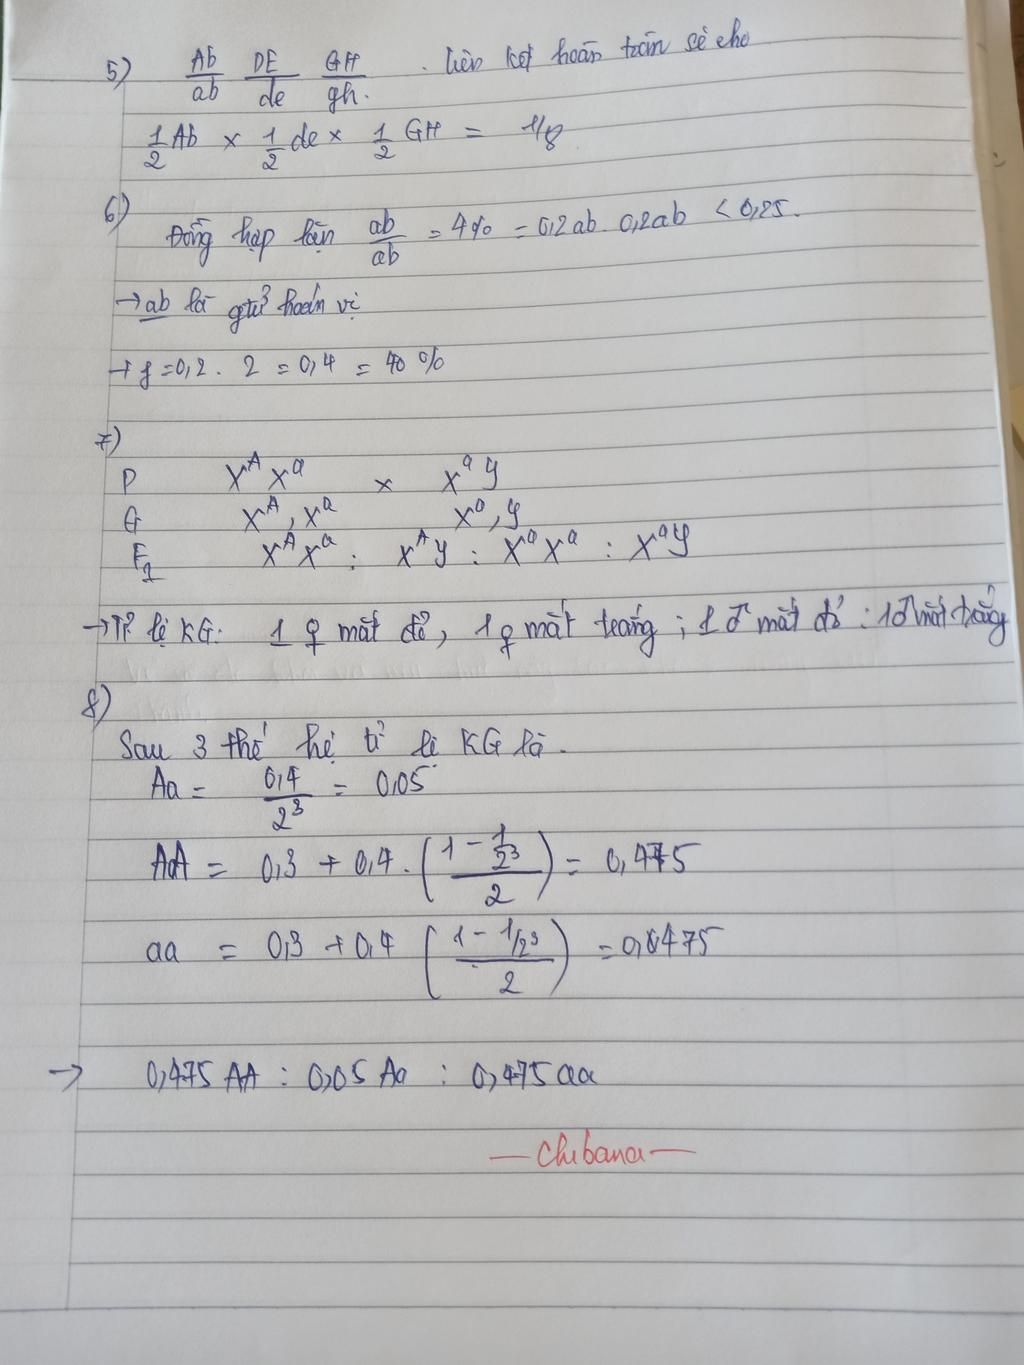 5) Ab/ab DE/de GH/gh. . liên kết hoàn toàn sẽ cho
1/2 Ab x 1/2 de x 1/2 GH = 1/8
6)
Đồng hợp lặn ab/ab = 4% = 0,2ab . 0,2ab < 0,25.
→ ab là gtử hoán vị
→ f = 0,2 . 2 = 0,4 = 40%
7)
P X^A X^a x X^a Y
G X^A, X^a X^a, Y
F1 X^A X^a : X^A Y : X^a X^a : X^a Y
→ Tỉ lệ KG: 1 ♀ mắt đỏ, 1 ♀ mắt trắng ; 1 ♂ mắt đỏ : 1 ♂ mắt trắng
8)
Sau 3 thế hệ tỉ lệ KG là.
Aa = 0,4/2^3 = 0,05
AA = 0,3 + 0,4 . ((1 - 1/2^3)/2) = 0,475
aa = 0,3 + 0,4 ((1 - 1/2^3)/2) = 0,475
→ 0,475 AA : 0,05 Aa : 0,475 aa
— Chibana —